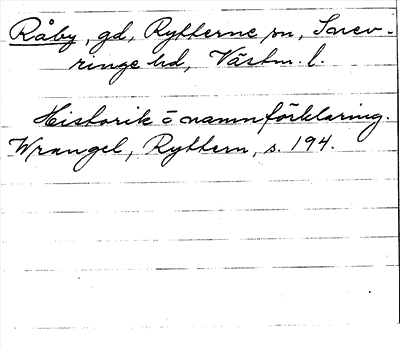 Råby, gd, Rytterne sn, Snev-
ringe hd, Västm. l.
Historik o namnförklaring.
Wrangel, Ryttern, s. 194.